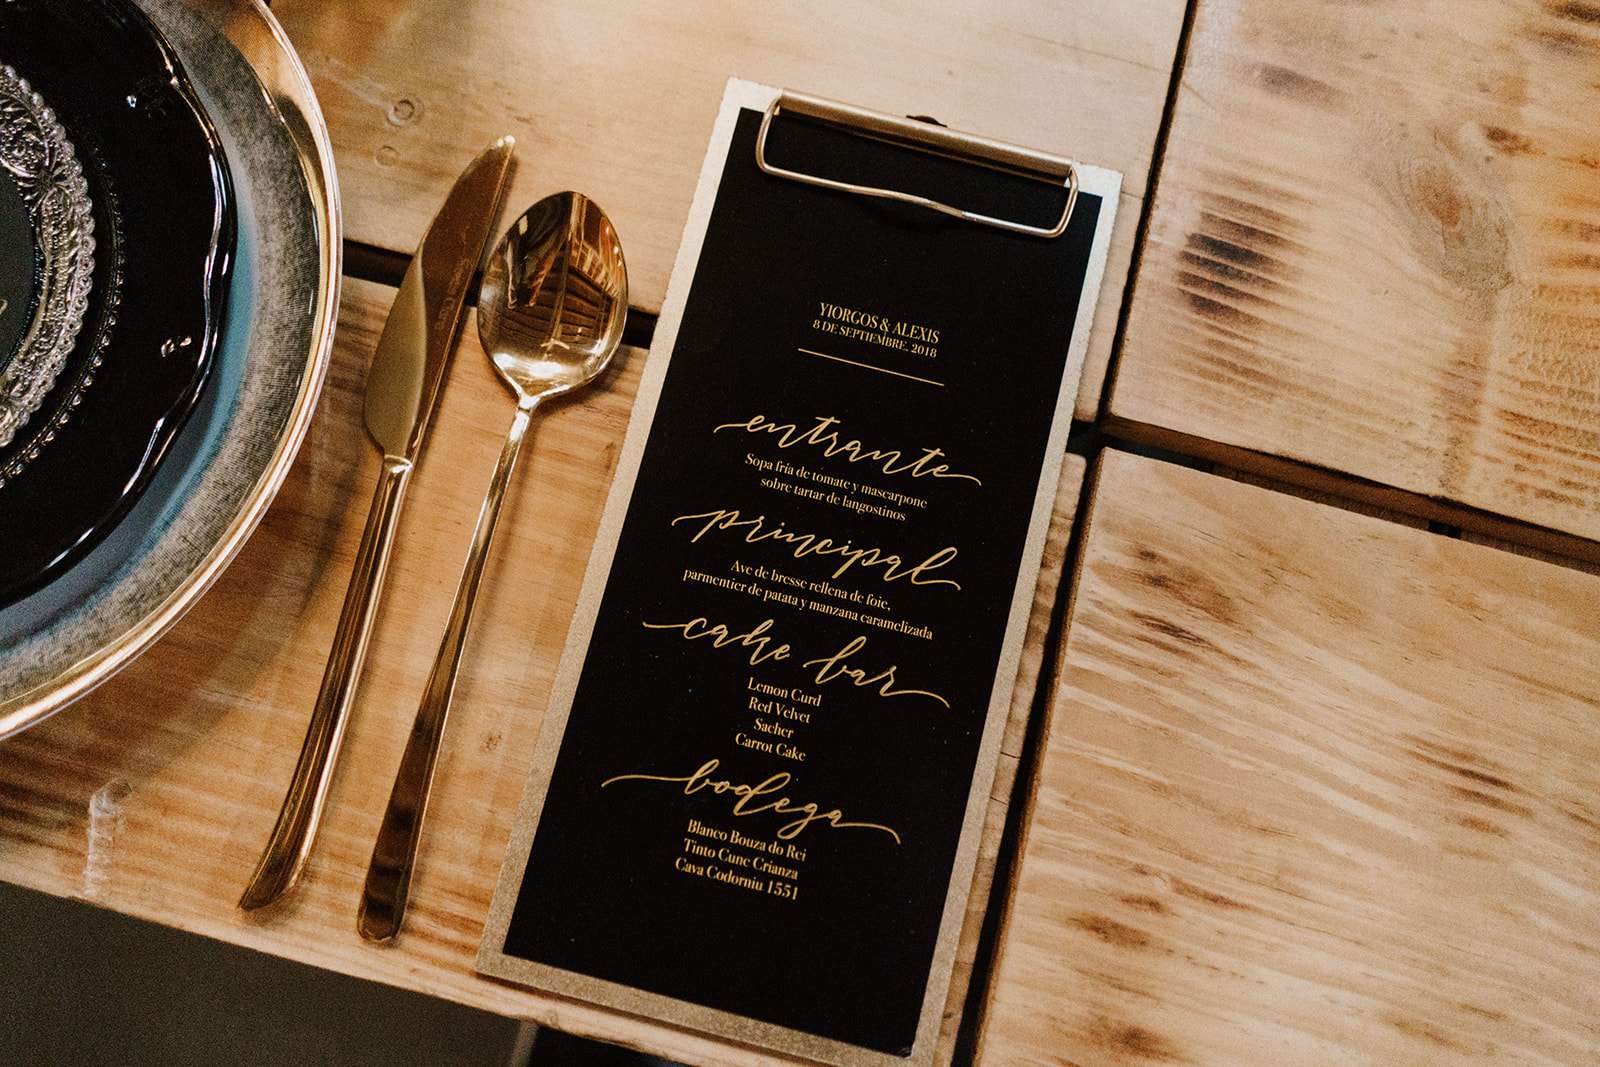 YIORGOS & ALEXIS
8 DE SEPTIEMBRE, 2018
entrante
Sopa fría de tomate y mascarpone
sobre tartar de langostinos
principal
Ave de bresse rellena de foie,
parmentier de patata y manzana caramelizada
cake bar
Lemon Curd
Red Velvet
Sacher
Carrot Cake
bodega
Blanco Bouza do Rei
Tinto Cune Crianza
Cava Codorniu 1551